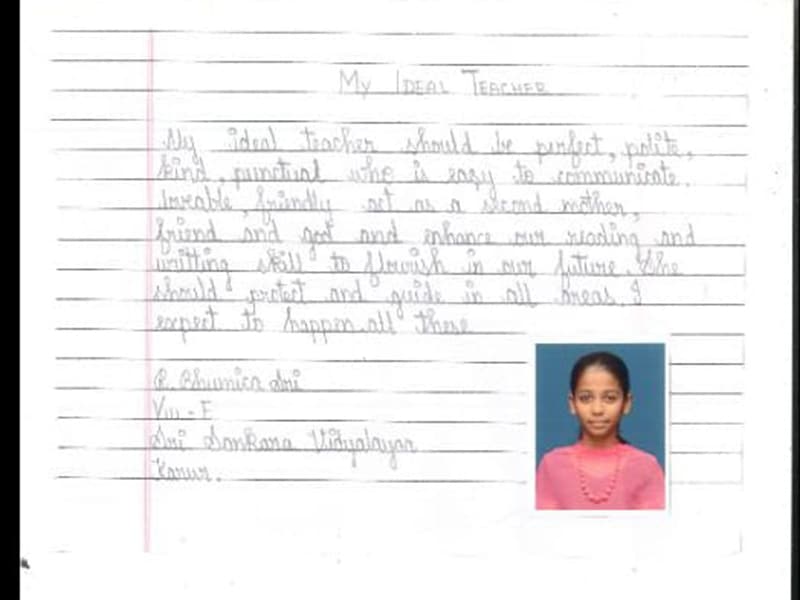 MY IDEAL TEACHER
My ideal teacher should be perfect, polite,
kind, punctual who is easy to communicate.
loveable, friendly act as a second mother,
friend and god and enhance our reading and
writting skill to flourish in our future. She
should protect and guide in all areas. I
expect to happen all these
R. Bhumica Sri
VIII - F
Sri Sankara Vidyalayaa
Karur.